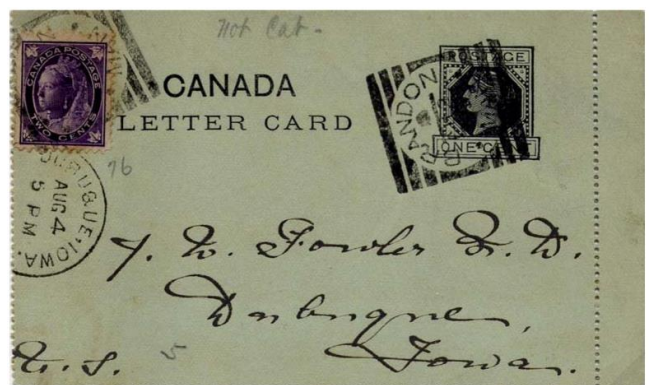 Not Cat.
CANADA POSTAGE
TWO CENTS
CANADA
LETTER CARD
POSTAGE
ONE CENT
BRANDON
76
DUBUQUE·IOWA.
AUG 4
5 PM
Fowler
Iowa.
U.S.